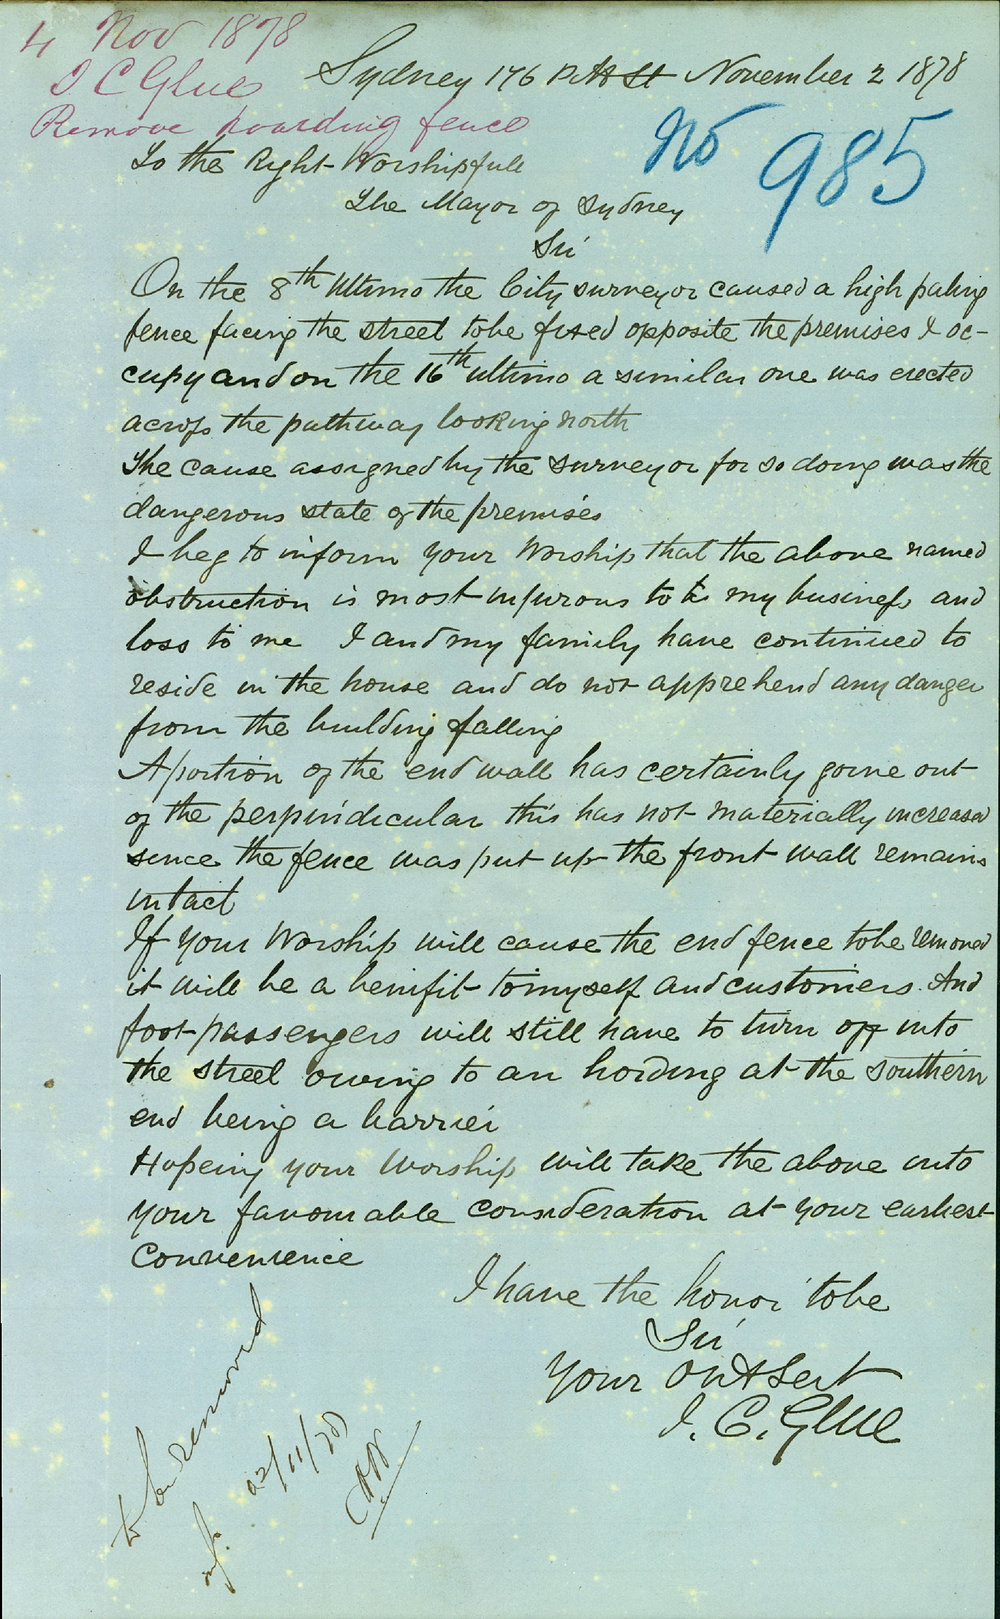 4 Nov 1878
J C Glue
Remove hoarding fence
Sydney 176 Pitt St November 2 1878
No 985
To the Right Worshipfull
The Mayor of Sydney
Sir
On the 8th Ultimo the City surveyor caused a high paling
fence facing the street tobe fixed opposite the premises I oc-
cupy and on the 16th ultimo a similar one was erected
across the pathway looking north
The cause assigned by the surveyor for so doing was the
dangerous state of the premises
I beg to inform your Worship that the above named
obstruction is most injurous to my business and
loss to me I and my family have continued to
reside in the house and do not apprehend any danger
from the building falling
A portion of the end wall has certainly gone out
of the perpindicular this has not materially increased
since the fence was put up the front wall remains
intact
If your Worship will cause the end fence tobe removed
it will be a benifit to myself and customers. And
foot passengers will still have to turn off into
the street owing to an hording at the southern
end being a barrier
Hopeing your Worship will take the above into
your favourable consideration at your earliest
Convenience
I have the honor tobe
Sir
Your Obt Sert
J. C. Glue
to be removed
22/11/78